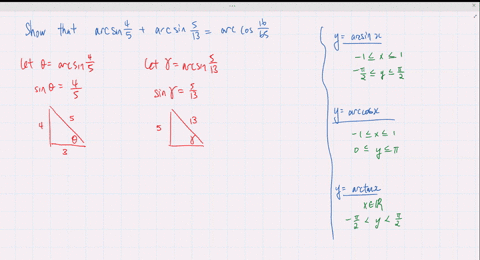 Show that arcsin 4/5 + arcsin 5/13 = arc cos 16/65
let θ = arcsin 4/5
sin θ = 4/5
4
5
θ
3
let γ = arcsin 5/13
sin γ = 5/13
5
13
γ
y = arcsin x
-1 ≤ x ≤ 1
-π/2 ≤ y ≤ π/2
y = arccos x
-1 ≤ x ≤ 1
0 ≤ y ≤ π
y = arctan x
x ∈ ℝ
-π/2 < y < π/2